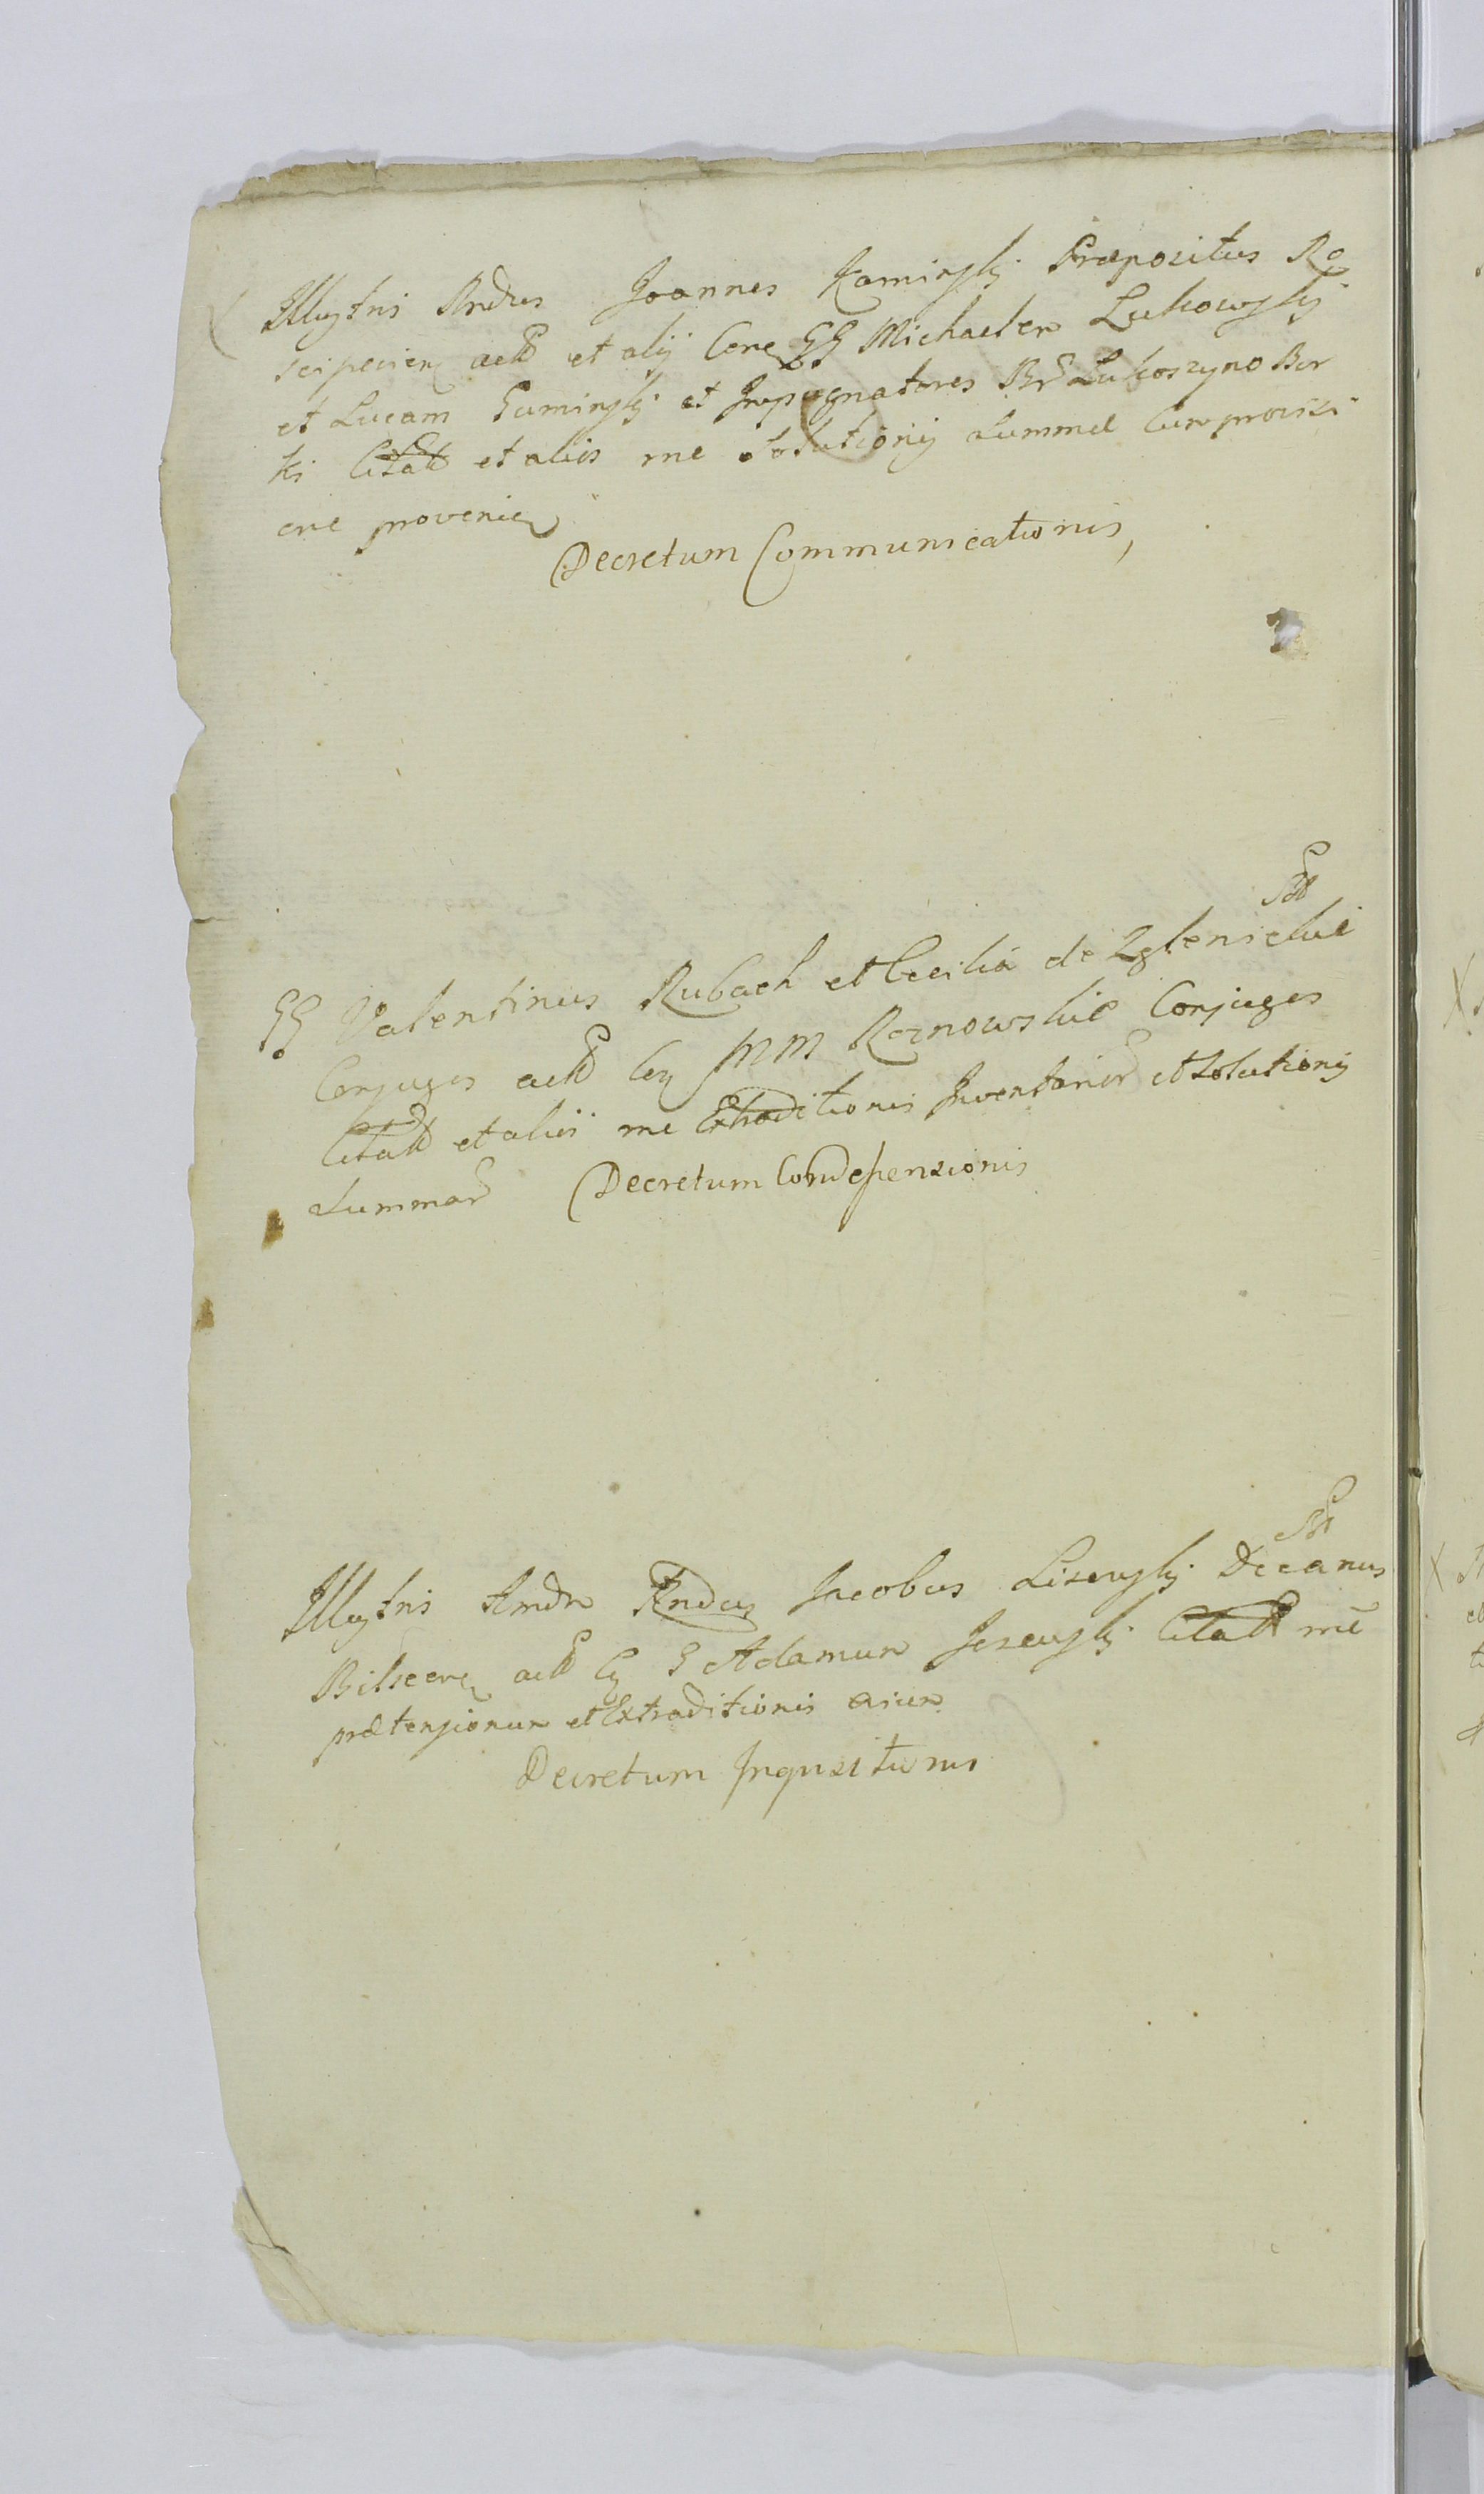 Illustris Rndus Joannes Kaminskj Præpositus Ro
sciperien act et alij Cone GG Michaelem Lukowskj
et Lucam Guminskj et Impugnatores Br Lukoszyno Bor
ki Citatt et aliis me Solutionis Summæ cum provisi
one provenien
Decretum Communicationis,
Stt
GG Valentinus Rubach et Cecilia de Zglenickie
Conjuges act Con MM Roznowskie Conjuges
Citatt et aliis me Extraditionis Inventarior et Solutionis
Summar Decretum Condepensionis
Stt
Illustris Amdn Rndus Jacobus Liscuskj Decanus
Bilscen act Con G Adamum Jezeuskj Citatt me
prætensionum et Extraditionis
Decretum Inquisitionis